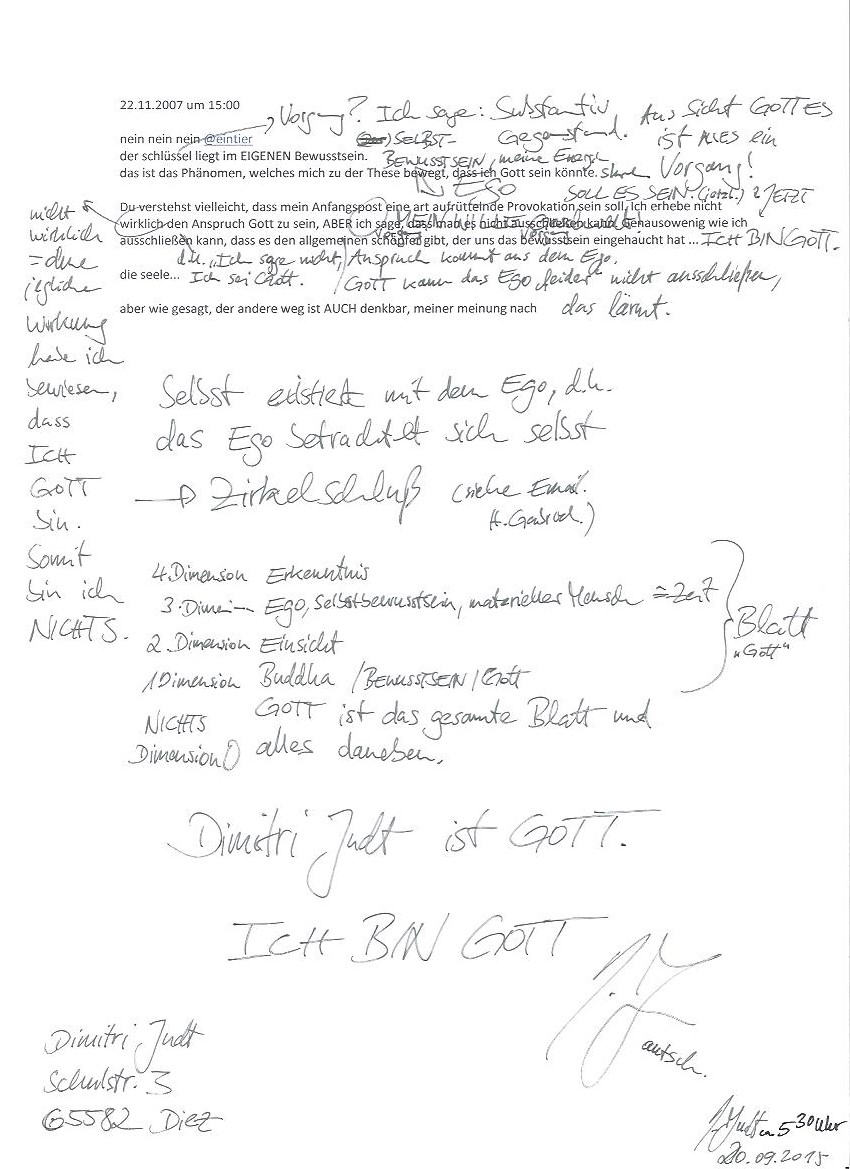 22.11.2007 um 15:00
Vorgang? Ich sage: Substantiv
Gegenstand.
Aus Sicht GOTTES
ist ALLES ein
Vorgang!
nein nein nein @eintier
SELBST-
der schlüssel liegt im EIGENEN Bewusstsein.
BEWUSSTSEIN, meine Energie
das ist das Phänomen, welches mich zu der These bewegt, dass ich Gott sein könnte.
EGO
SOLL ES SEIN. (jetzt.) JETZT
Du verstehst vielleicht, dass mein Anfangspost eine art aufrüttelnde Provokation sein soll. Ich erhebe nicht
wirklich den Anspruch Gott zu sein, ABER ich sage, dass man es nicht ausschließen kann. Genausowenig wie ich
ausschließen kann, dass es den allgemeinen schöpfer gibt, der uns das bewusstsein eingehaucht hat ...
ICH BIN GOTT.
d.h. "Ich sage nicht,
Ich sei Gott.
Anspruch kommt aus dem Ego.
GOTT kann das Ego "leider" nicht ausschließen,
das lärmt.
die seele...
aber wie gesagt, der andere weg ist AUCH denkbar, meiner meinung nach
nicht
wirklich
= ohne
jegliche
Wirkung
habe ich
bewiesen,
dass
ICH
GOTT
bin.
Somit
bin ich
NICHTS.
Selbst existiert mit dem Ego, d.h.
das Ego betrachtet sich selbst
→ Zirkelschluß (siehe Email.
4. Dimension Erkenntnis
3. Dimen— Ego, Selbstbewusstsein, materieller Mensch = Zeit
2. Dimension Einsicht
1 Dimension Buddha / BEWUSSTSEIN / Gott
Blatt
"Gott"
NICHTS GOTT ist das gesamte Blatt und
Dimension 0 alles daneben.
Dimitri Judt ist GOTT.
ICH BIN GOTT
autsch.
Dimitri Judt
Schulstr. 3
65582 Diez
J. Judt 5 30 Uhr
20.09.2015